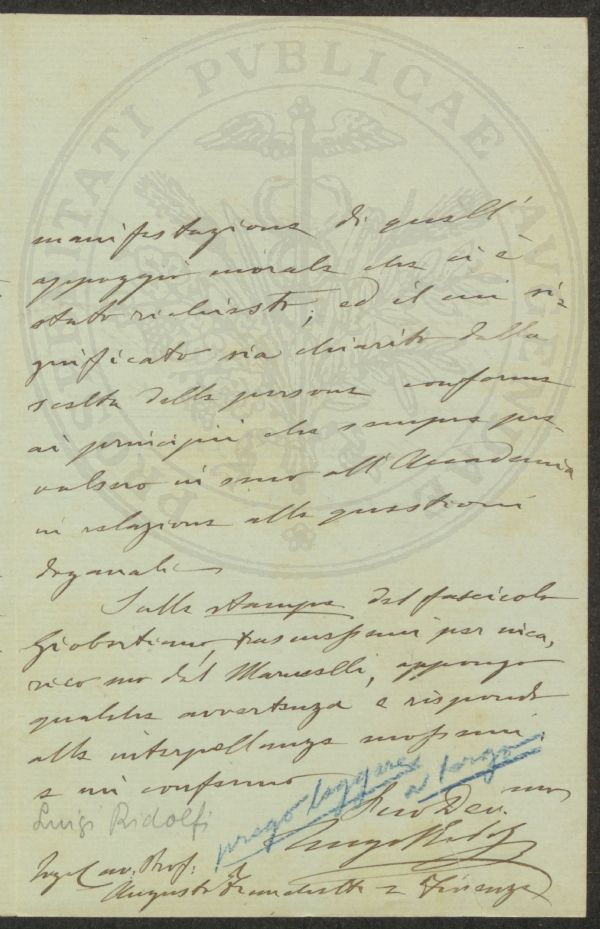 PROSPERITATI PVBLICAE AVGENDAE
manifestazione di quell'
appoggio morale che ci è
stato richiesto; ed il cui si=
gnificato sia chiarito dalla
scelta delle persone conforme
ai principii che sempre pre
valsero in seno all'Accademia
in relazione alle questioni
doganali.
Sulle stampe del fascicolo
Giobertiano, trasmessomi per inca,
rico suo dal Marucelli, appongo
qualche avvertenza e rispondo
alle interpellanze mossemi,
e mi confermo
prego leggere
a tergo
Suo Dev. mo
Luigi Ridolfi
Luigi Ridolfi
Prof.
Augusto Franchetti = Firenze